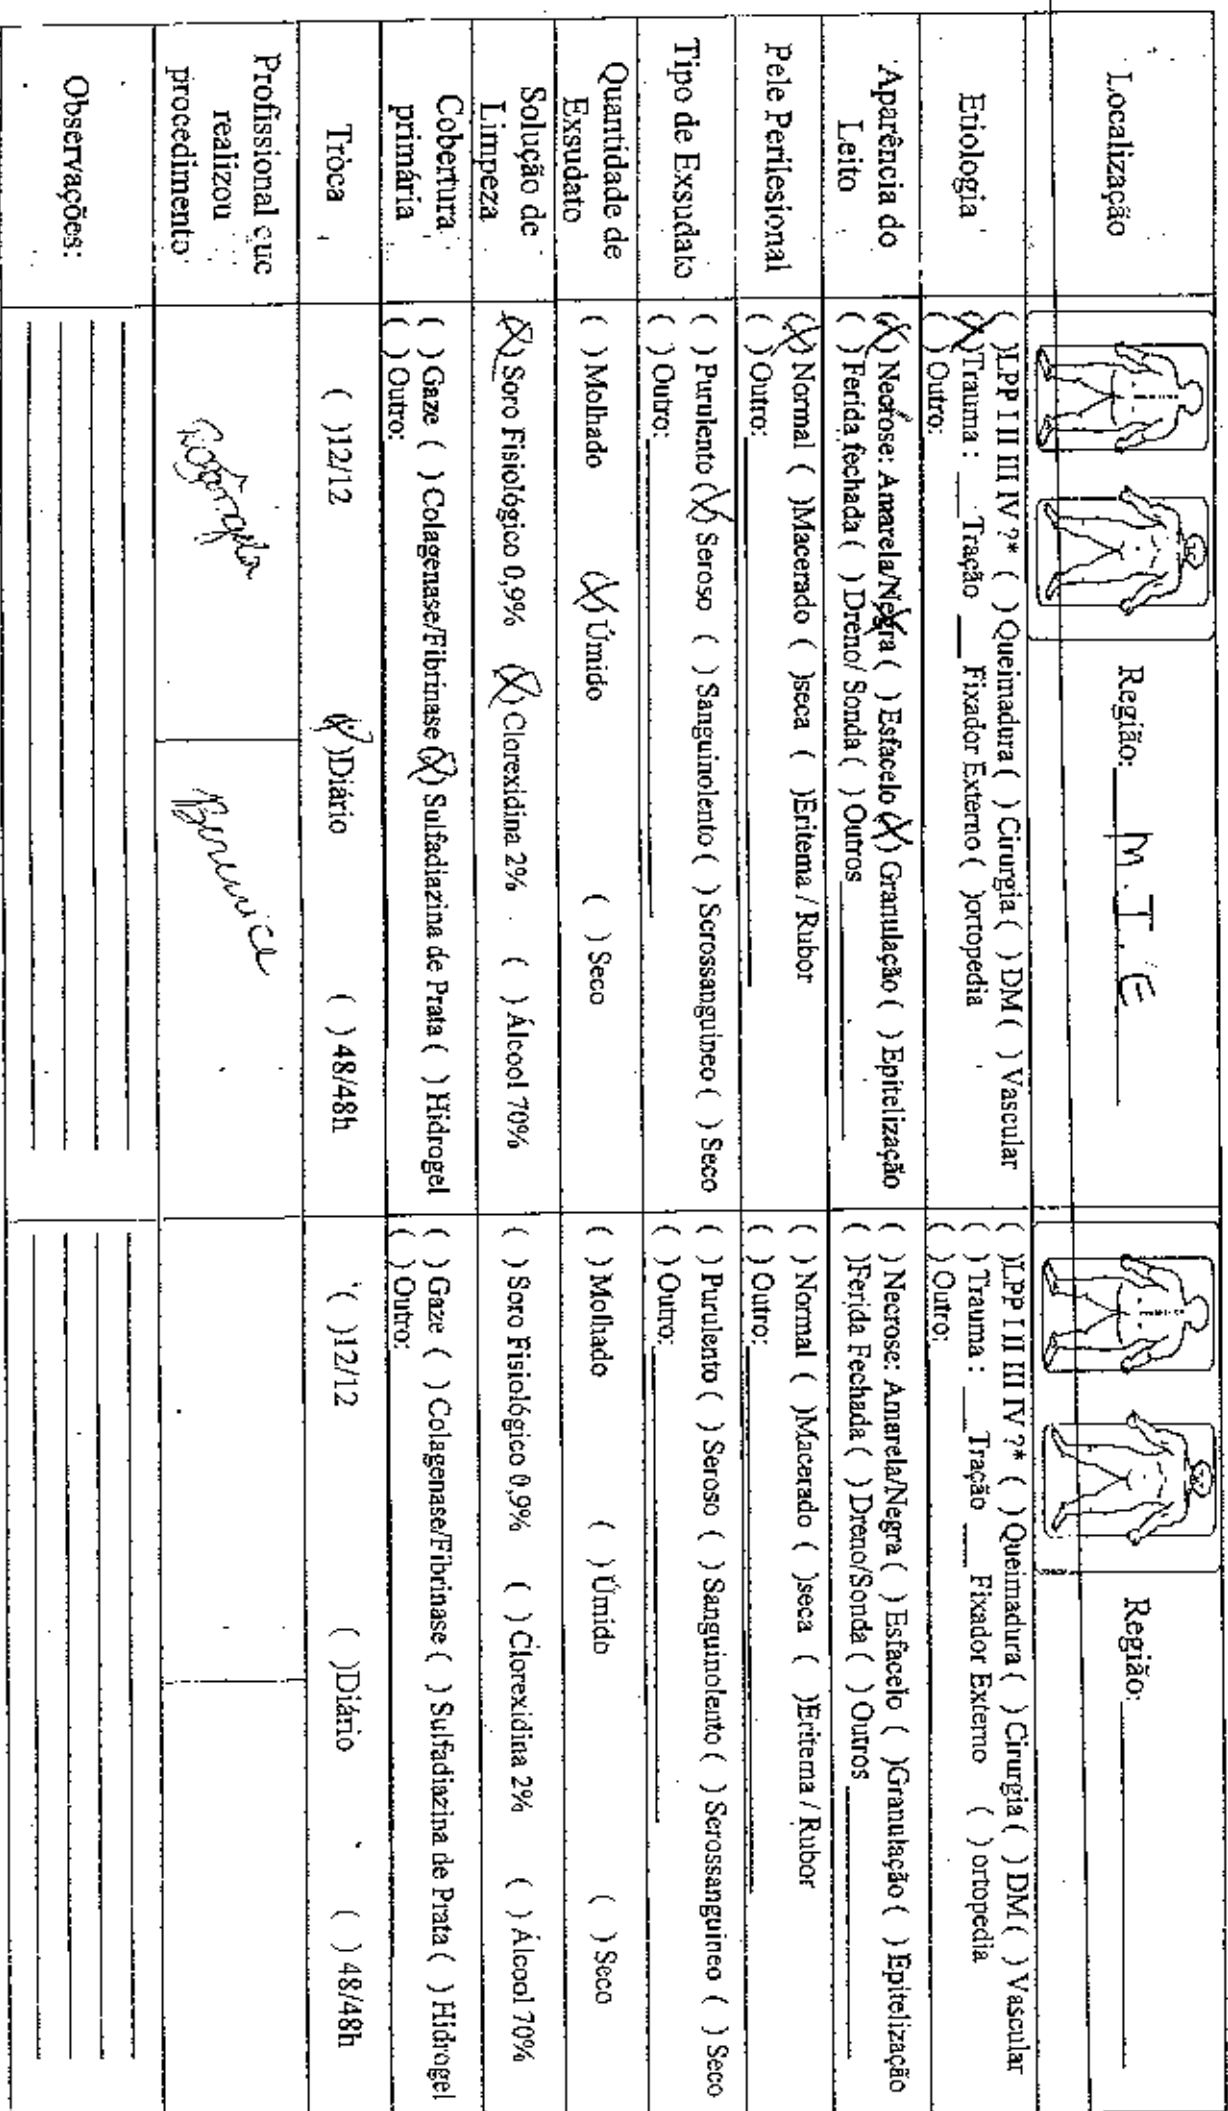 Localização
Região: M.I.E
Região:
Etiologia
( )LPP I II III IV ?* ( ) Queimadura ( ) Cirurgia ( ) DM ( ) Vascular
(X)Trauma : ___ Tração ___ Fixador Externo ( )ortopedia
( ) Outro:
( )LPP I II III IV ?* ( ) Queimadura ( ) Cirurgia ( ) DM ( ) Vascular
( ) Trauma : ___ Tração ___ Fixador Externo ( ) ortopedia
( ) Outro:
Aparência do
Leito
(X) Necrose: Amarela/Negra ( ) Esfacelo (X) Granulação ( ) Epitelização
( ) Ferida fechada ( ) Dreno/ Sonda ( ) Outros
( ) Necrose: Amarela/Negra ( ) Esfacelo ( )Granulação ( ) Epitelização
( )Ferida Fechada ( ) Dreno/Sonda ( ) Outros
Pele Perilesional
(X) Normal ( )Macerado ( )seca ( )Eritema / Rubor
( ) Outro:
( ) Normal ( )Macerado ( )seca ( )Eritema / Rubor
( ) Outro:
Tipo de Exsudato
( ) Purulento (X) Seroso ( ) Sanguinolento ( ) Serossanguineo ( ) Seco
( ) Outro:
( ) Purulento ( ) Seroso ( ) Sanguinolento ( ) Serossanguineo ( ) Seco
( ) Outro:
Quantidade de
Exsudato
( ) Molhado (X) Úmido ( ) Seco
( ) Molhado ( ) Úmido ( ) Seco
Solução de
Limpeza
(X) Soro Fisiológico 0,9% (X) Clorexidina 2% ( ) Álcool 70%
( ) Soro Fisiológico 0,9% ( ) Clorexidina 2% ( ) Álcool 70%
Cobertura
primária
( ) Gaze ( ) Colagenase/Fibrinase (X) Sulfadiazina de Prata ( ) Hidrogel
( ) Outro:
( ) Gaze ( ) Colagenase/Fibrinase ( ) Sulfadiazina de Prata ( ) Hidrogel
( ) Outro:
Troca
( )12/12 (X)Diário ( ) 48/48h
( )12/12 ( )Diário ( ) 48/48h
Profissional que
realizou
procedimento
Rosângela
Berenice
Observações: